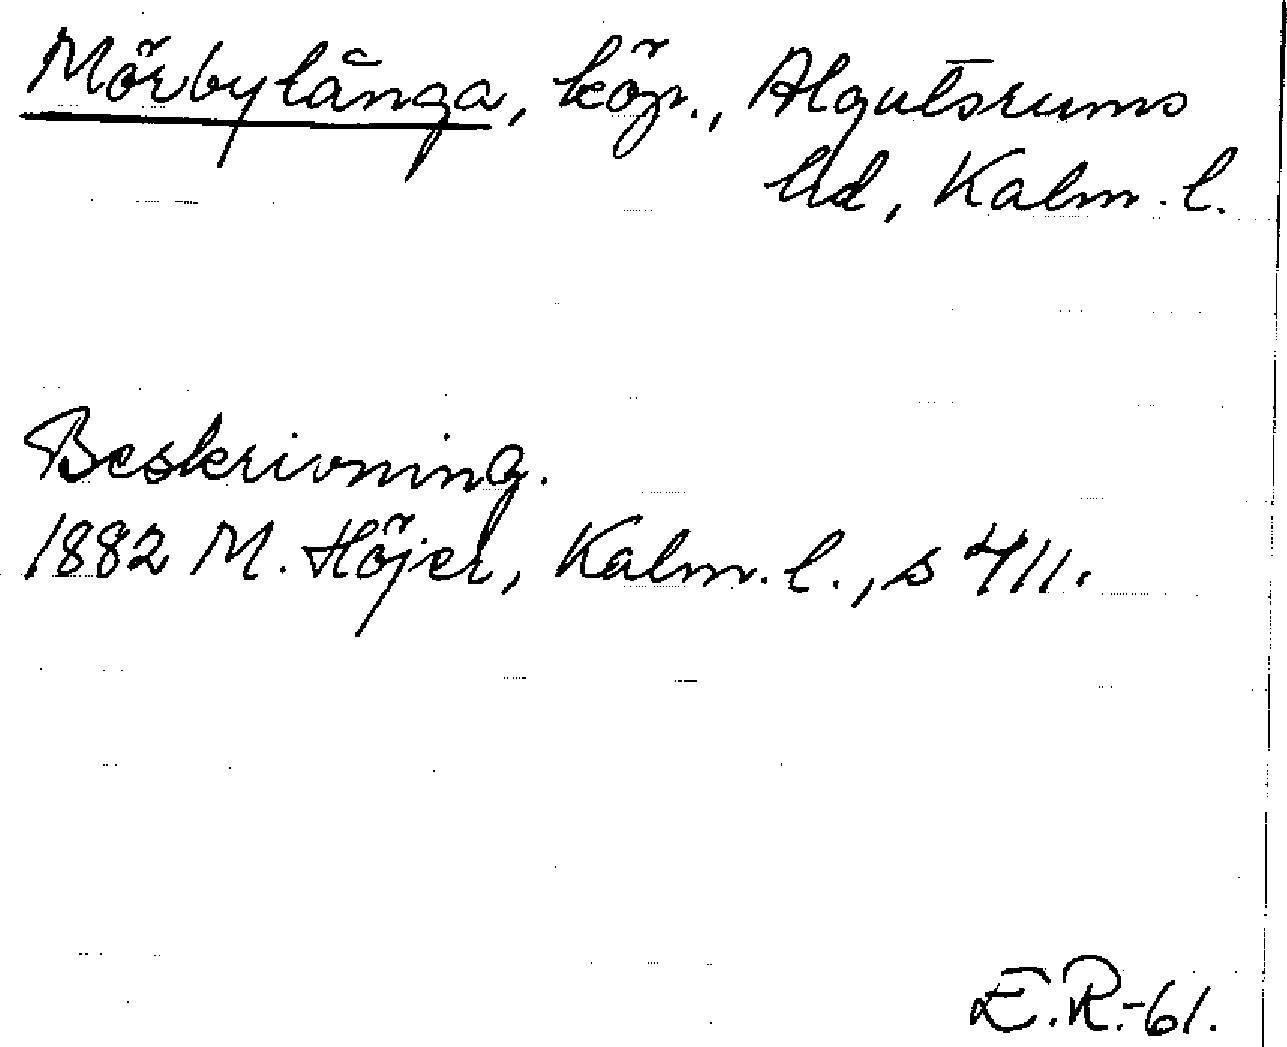 Mörbylånga, köp., Algutsrums
hd, Kalm. l.
Beskrivning.
1882 M. Höjer, Kalm. l., s 411.
E.R.-61.